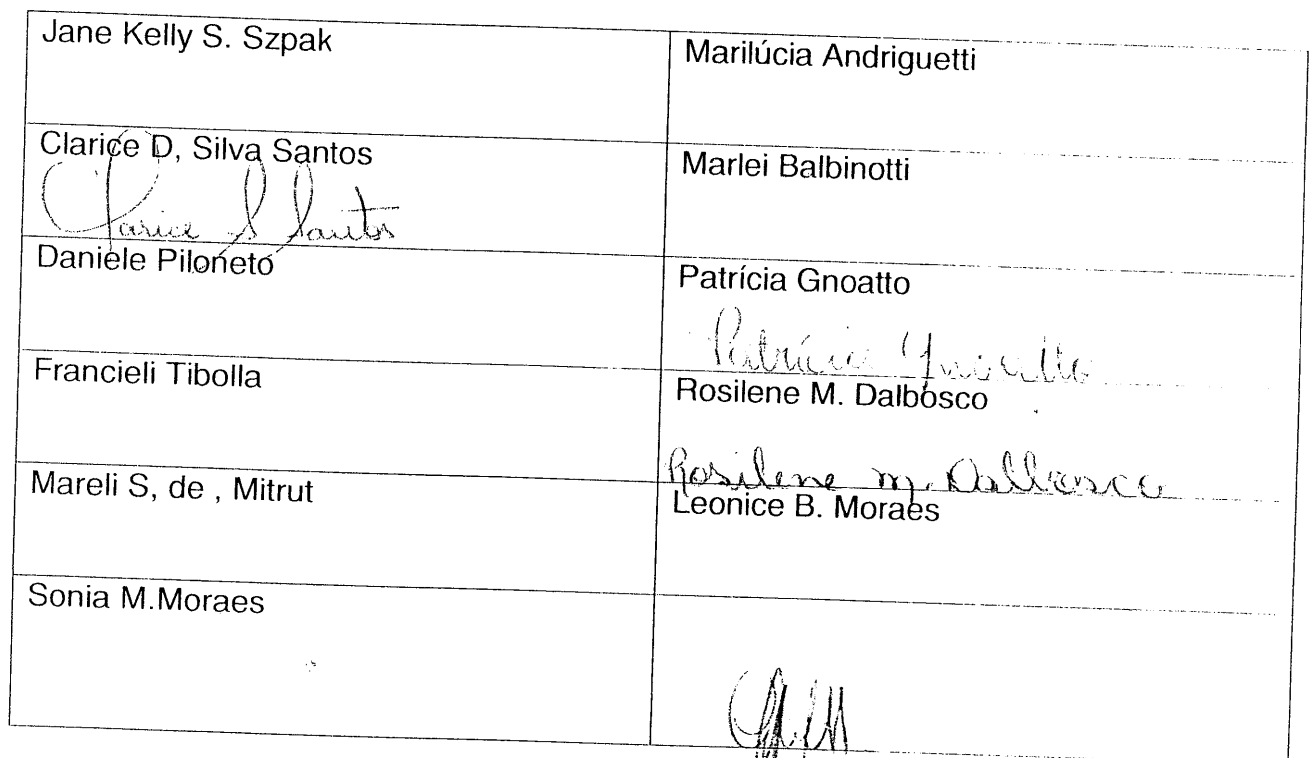 Jane Kelly S. Szpak
Marilúcia Andriguetti
Clarice D, Silva Santos
Clarice S Santos
Marlei Balbinotti
Daniele Piloneto
Patrícia Gnoatto
Patrícia Gnoatto
Francieli Tibolla
Rosilene M. Dalbosco
Rosilene M. Dalbosco
Mareli S, de , Mitrut
Leonice B. Moraes
Sonia M.Moraes